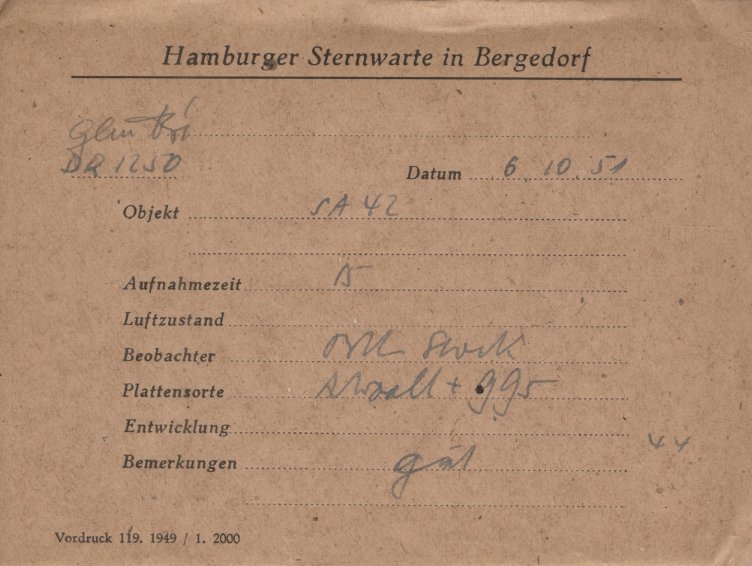 Hamburger Sternwarte in Bergedorf
DR 1250
Datum 6. 10. 51
Objekt SA 42
Aufnahmezeit 15
Luftzustand
Beobachter
Plattensorte
Entwicklung
44
Bemerkungen gut
Vordruck 119. 1949 / 1. 2000